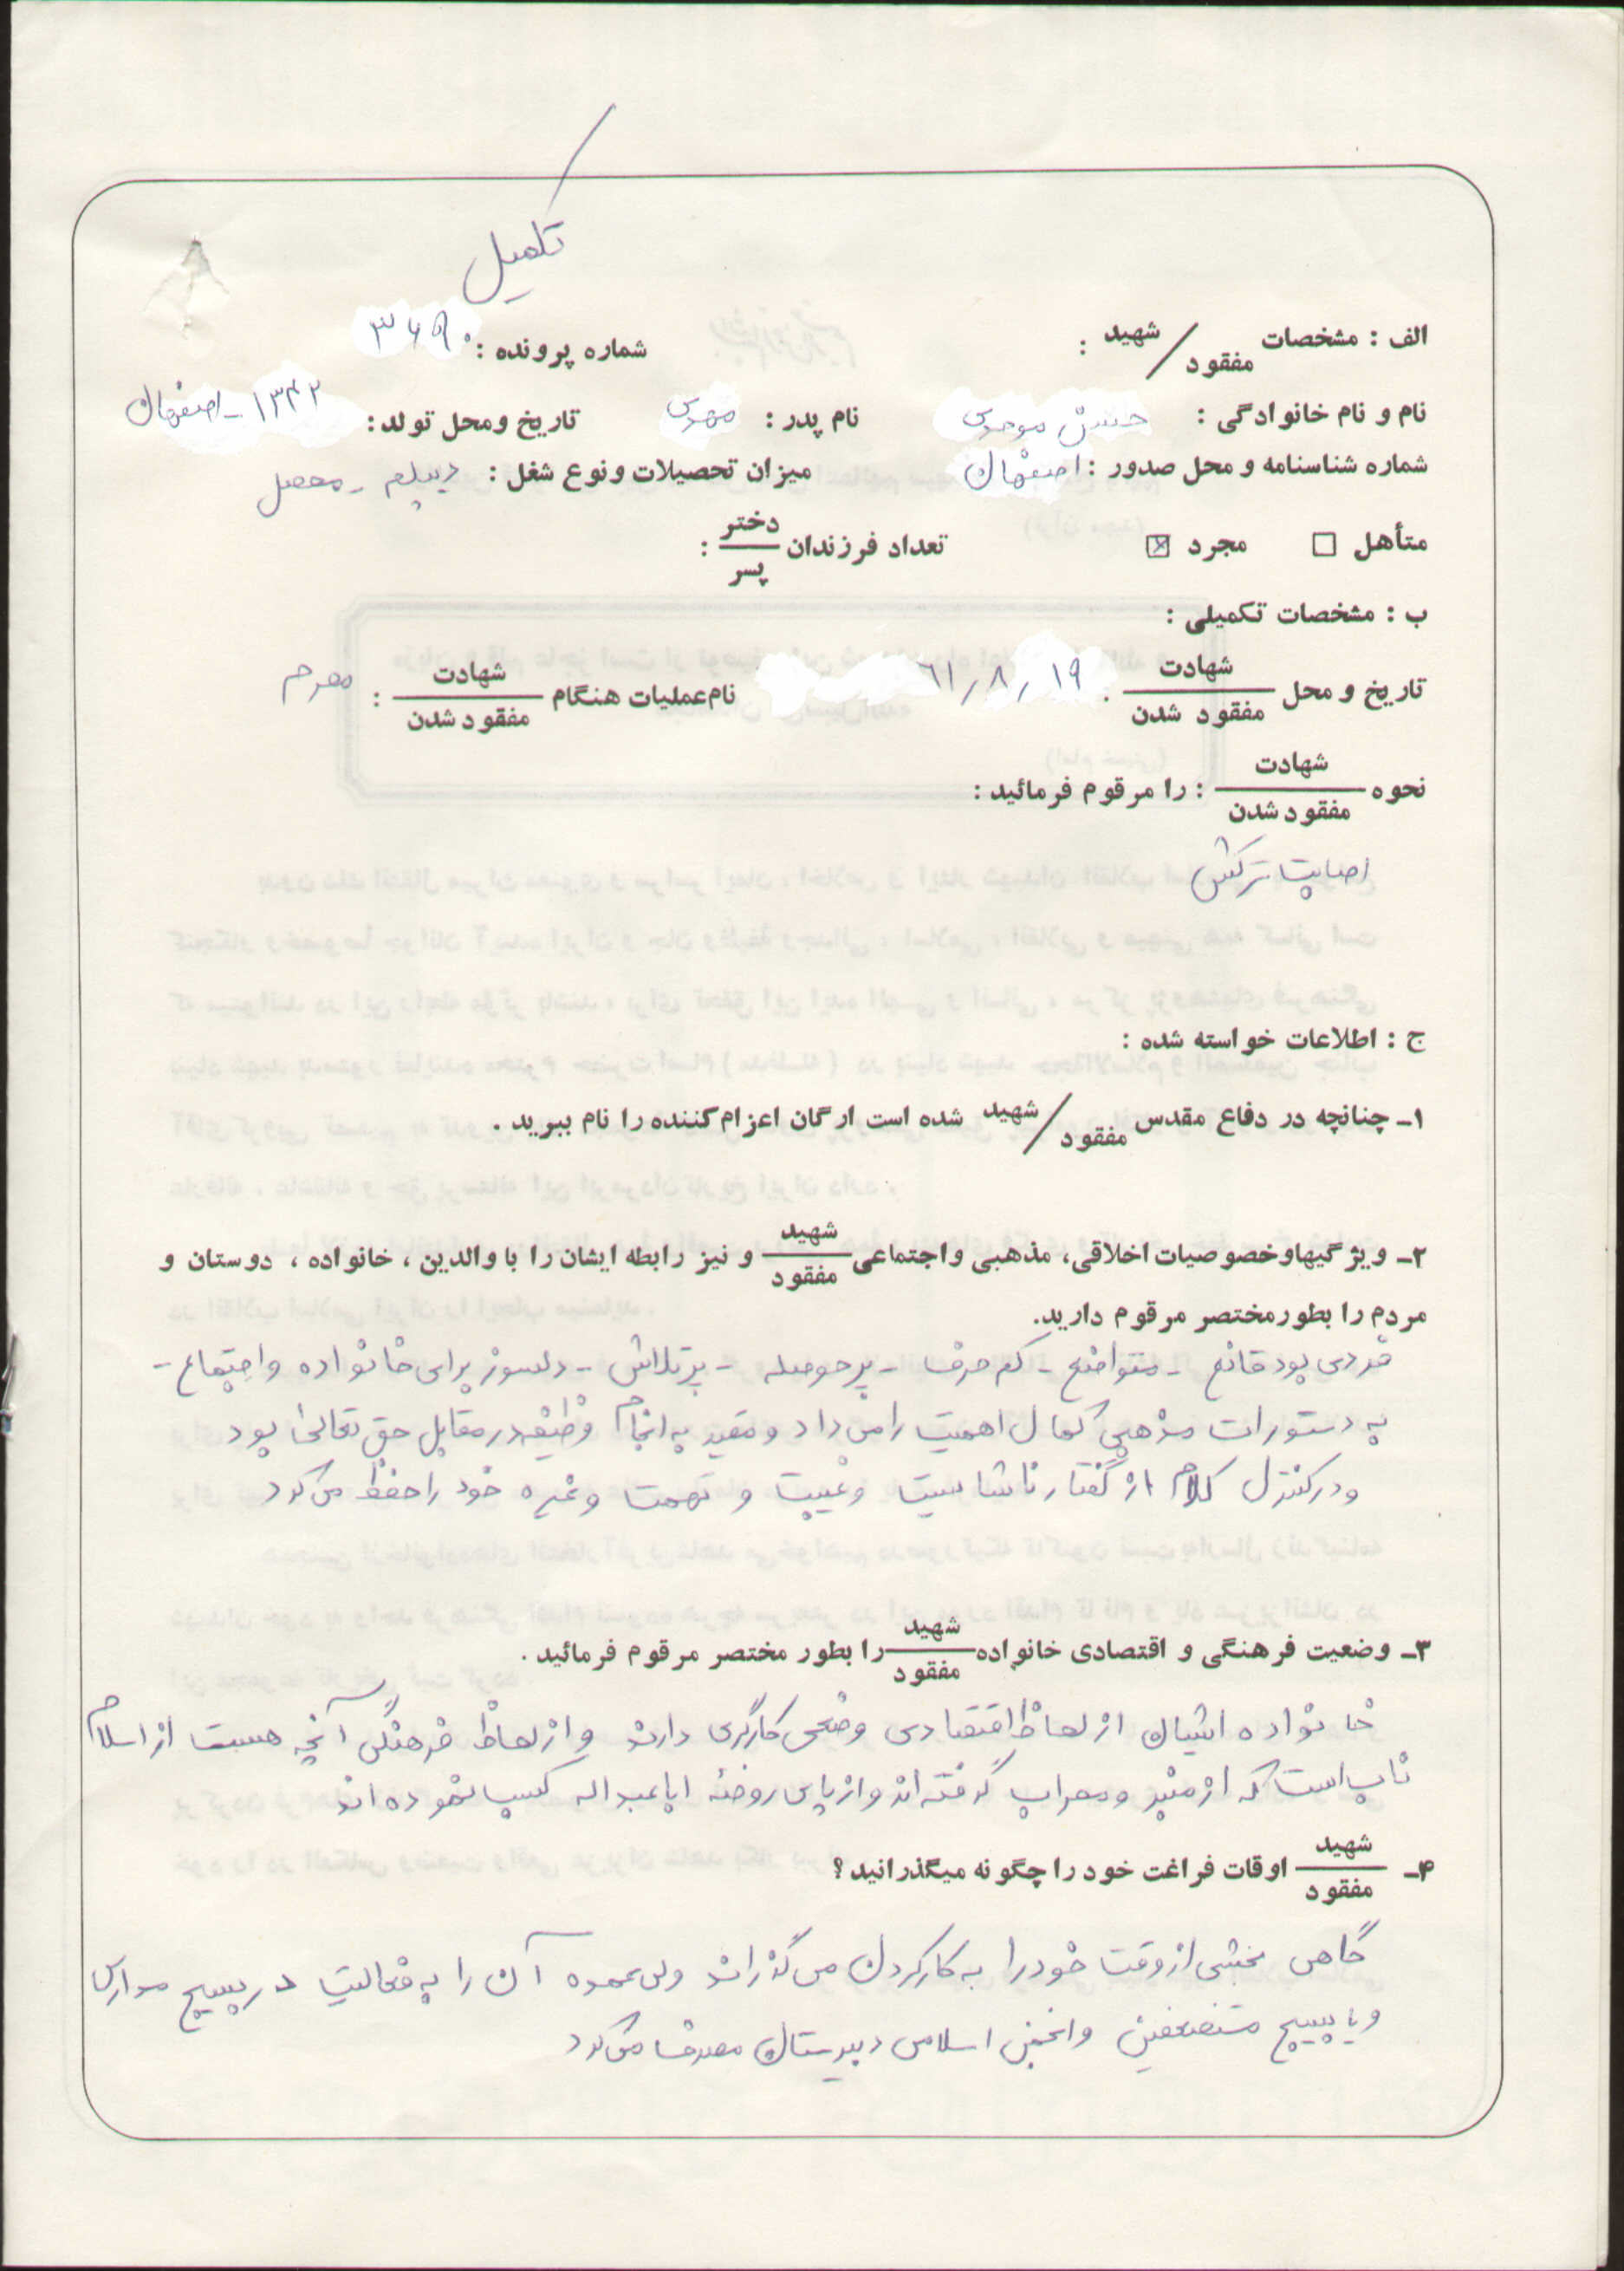 تکمیل
الف : مشخصات شهید / مفقود :
شماره پرونده : ۳۶۹۰
نام و نام خانوادگی : حسن موحدی نام پدر : مهدی تاریخ ومحل تولد : ۱۳۴۲ - اصفهان
شماره شناسنامه و محل صدور : اصفهان میزان تحصیلات ونوع شغل : دیپلم - محصل
متأهل ☐ مجرد ☒ تعداد فرزندان دختر / پسر :
ب : مشخصات تکمیلی :
تاریخ و محل شهادت / مفقود شدن : ۶۱/۸/۱۹ نام عملیات هنگام شهادت / مفقود شدن : محرم
نحوه شهادت / مفقود شدن : را مرقوم فرمائید :
اصابت ترکش
ج : اطلاعات خواسته شده :
۱ـ چنانچه در دفاع مقدس شهید / مفقود شده است ارگان اعزام کننده را نام ببرید .
۲ـ ویژگیهاوخصوصیات اخلاقی، مذهبی واجتماعی شهید / مفقود و نیز رابطه ایشان را با والدین ، خانواده ، دوستان و
مردم را بطورمختصر مرقوم دارید.
فردی بود قانع - متواضع - کم حرف - پرحوصله - پرتلاش - دلسوز برای خانواده واجتماع -
به دستورات مذهبی کمال اهمیت را می داد و مقید به انجام وظیفه در مقابل حق تعالی بود
ودر کنترل کلام از گفتار ناشایست وغیبت و تهمت وغیره خود را حفظ می کرد
۳ـ وضعیت فرهنگی و اقتصادی خانواده شهید / مفقود را بطور مختصر مرقوم فرمائید .
خانواده ایشان از لحاظ اقتصادی وضعی کارگری دارند و از لحاظ فرهنگی آنچه هست از اسلام
ناب است که از منبر و محراب گرفته اند و از پای روضه اباعبداله کسب نموده اند
۴ـ شهید / مفقود اوقات فراغت خود را چگونه میگذرانید ؟
گاهی بخشی از وقت خود را به کارکردن می گذراند ولی عمده آن را به فعالیت در بسیج مدارس
و یا بسیج مستضعفین وانجمن اسلامی دبیرستان مصرف می کرد